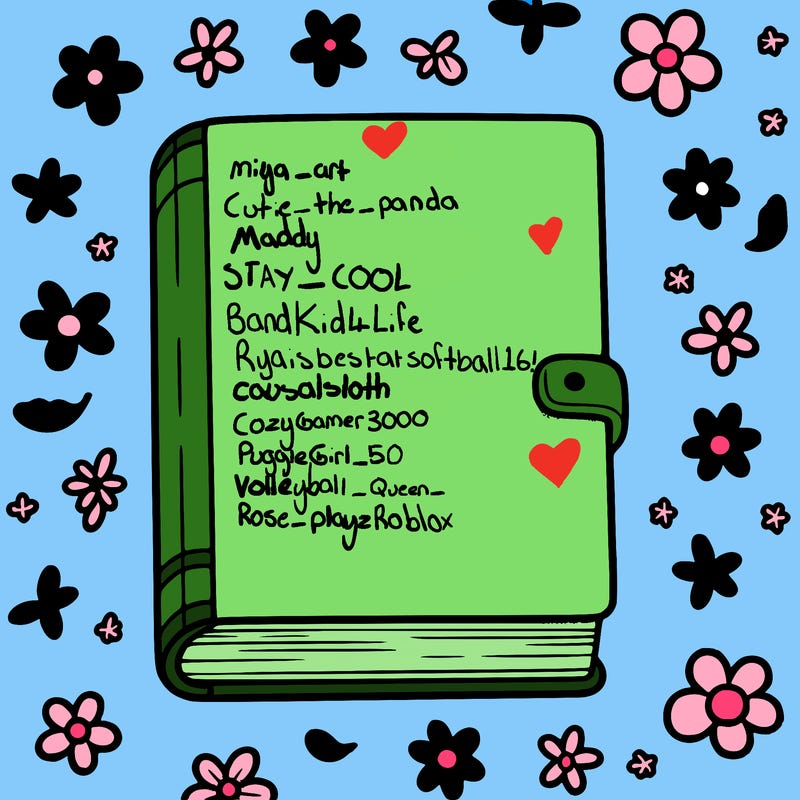 miya_art
Cutie_the_panda
Maddy
STAY_COOL
BandKid4Life
Ryaisbestatsoftball16!
cousalsloth
CozyGamer3000
PuggleGirl_50
Volleyball_Queen_
Rose_playzRoblox